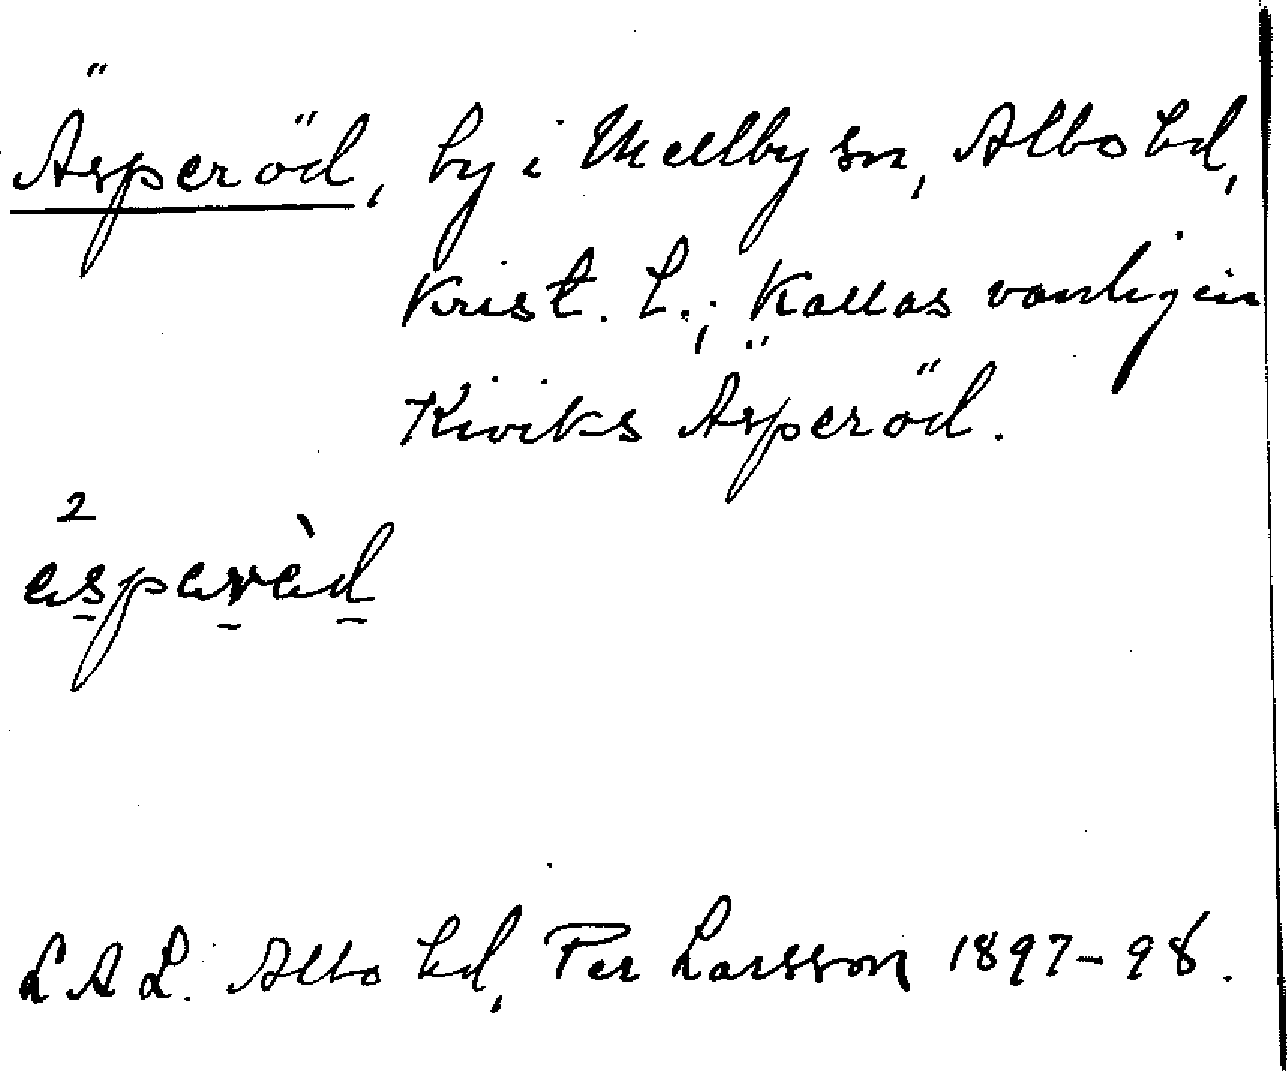 Äsperöd, by i Mellby sn, Albo hd,
Krist. L.; Kallas vanligen
Kiviks Äsperöd.
2
L A L. Albo hd, Per Larsson 1897-98.